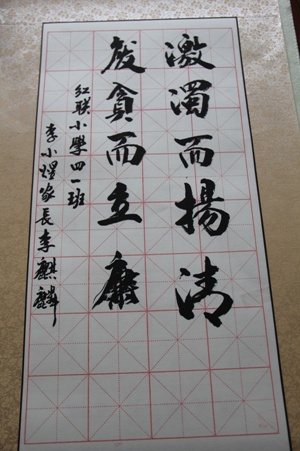 激濁而揚清
廢貪而立廉
红联小學四一班
李小熠家长李麒麟